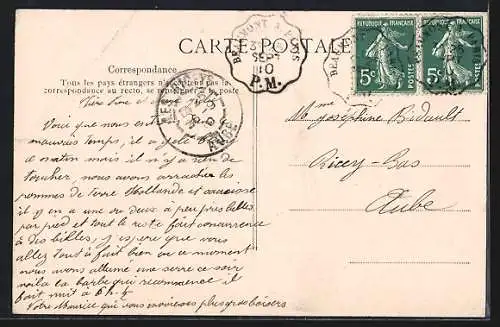 CARTE POSTALE
Correspondance
Tous les pays étrangers n'acceptent pas la
correspondance au recto, se renseigner à la poste
BEAUMONT A
SEPT
10
P.M.
5c POSTES
5c POSTES
AUBE
Voici que nous entrons
mauvais temps, il a gelé
ce matin mais il n'y a rien de
toucher, nous avons arraché les
pommes de terre Hollande et saucisse
il y en a une ou deux à peu près belles
par pied et tout le reste fait concurrence
à des billes, j'espère que vous
allez tout à fait bien en ce moment
nous avons allumé une serre ce soir
voilà la barbe qui recommence il
fait nuit à 6 h.
Votre Maurice qui vous envoie ses plus gros baisers
Mme Joséphine Bidault
Ricey-Bas
Aube